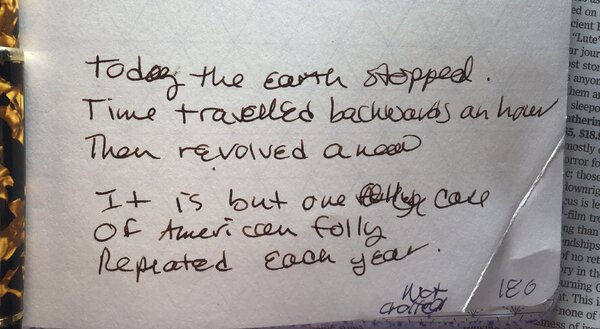 Today the earth stopped.
Time travelled backwards an hour
Then revolved anew
It is but one case
of American folly
Repeated each year.
Not
1EG
ed on
cient
"Lute"
ar jour
ost sto
anyon
them a
sleepo
athering
5, $18.9
mostly
orror fo
c; those
downrig
cus is le
-film tro
ng than
endships
of no ret
ry in the
urning C
t. This i
none of